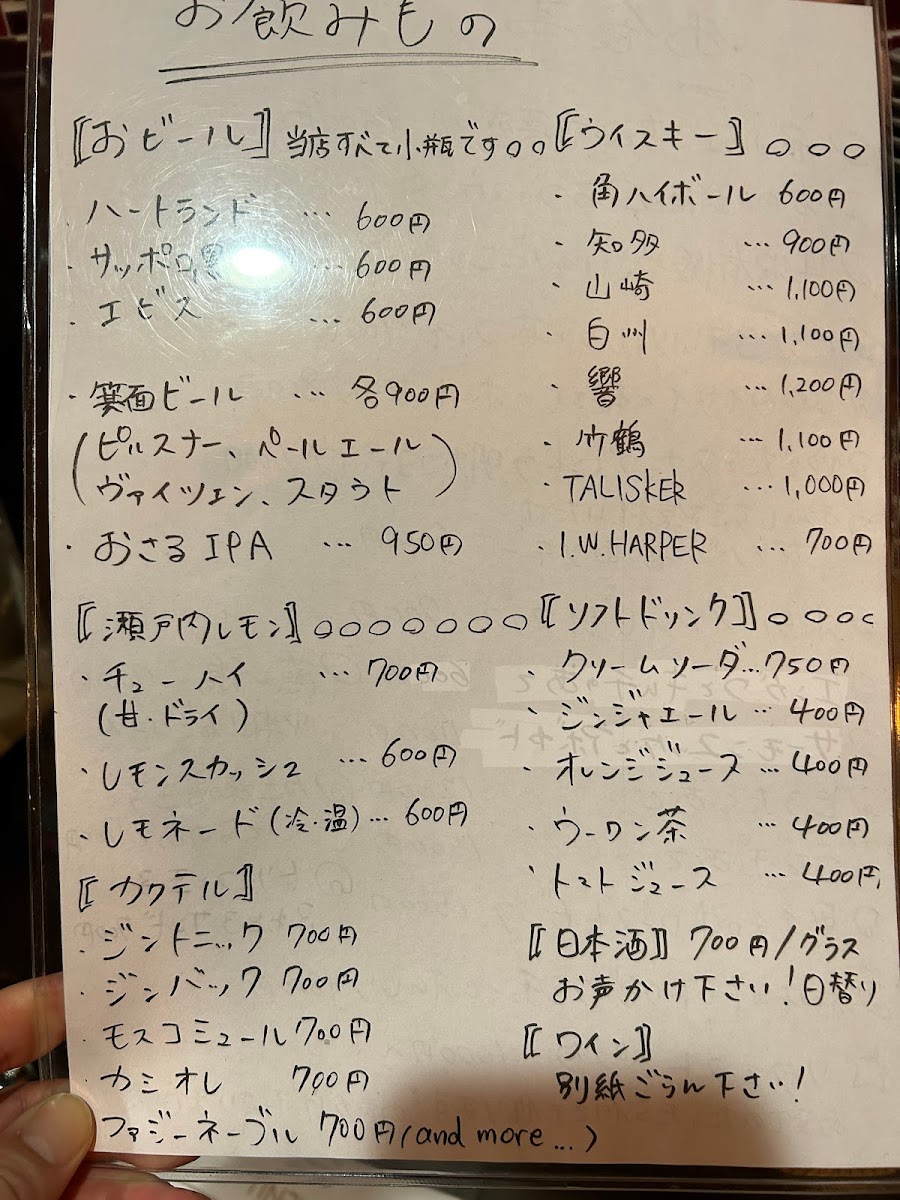 お飲みもの
〚おビール〛当店すべて小瓶です○○
・ハートランド … 600円
・サッポロ黒 … 600円
・エビス … 600円
・箕面ビール … 各900円
(ピルスナー、ペールエール
ヴァイツェン、スタウト)
・おさるIPA … 950円
〚瀬戸内レモン〛○○○○○○○
・チューハイ … 700円
(甘・ドライ)
・レモンスカッシュ … 600円
・レモネード(冷・温)… 600円
〚カクテル〛
・ジントニック 700円
・ジンバック 700円
・モスコミュール 700円
・カシオレ 700円
・ファジーネーブル 700円(and more...)
〚ウイスキー〛○○○
・角ハイボール 600円
・知多 … 900円
・山崎 … 1,100円
・白州 … 1,100円
・響 … 1,200円
・竹鶴 … 1,100円
・TALISKER … 1,000円
・I.W.HARPER … 700円
〚ソフトドリンク〛○○○○
・クリームソーダ…750円
・ジンジャエール … 400円
・オレンジジュース … 400円
・ウーロン茶 … 400円
・トマトジュース … 400円
〚日本酒〛700円/グラス
お声かけ下さい!日替り
〚ワイン〛
別紙ごらん下さい!